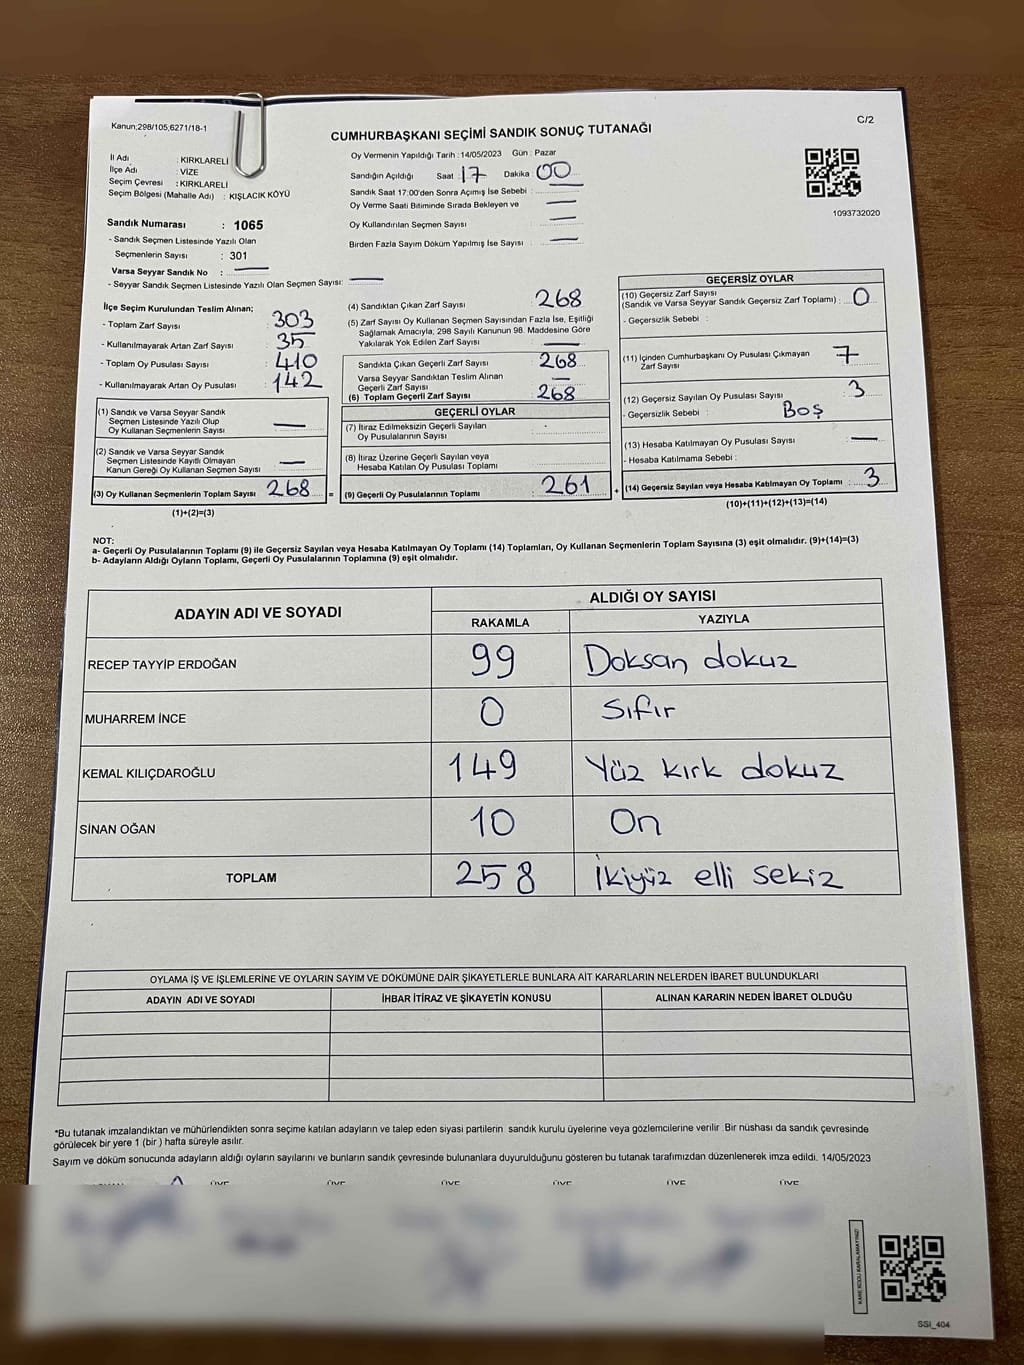 Kanun;298/105;6271/18-1
C/2
CUMHURBAŞKANI SEÇİMİ SANDIK SONUÇ TUTANAĞI
İl Adı : KIRKLARELİ
İlçe Adı : VİZE
Seçim Çevresi : KIRKLARELİ
Seçim Bölgesi (Mahalle Adı) : KIŞLACIK KÖYÜ
Oy Vermenin Yapıldığı Tarih : 14/05/2023 Gün : Pazar
Sandığın Açıldığı Saat : 17 Dakika : 00
Sandık Saat 17:00'den Sonra Açımış İse Sebebi : —
Oy Verme Saati Bitiminde Sırada Bekleyen ve —
Oy Kullandırılan Seçmen Sayısı —
Birden Fazla Sayım Döküm Yapılmış İse Sayısı : —
1093732020
Sandık Numarası : 1065
- Sandık Seçmen Listesinde Yazılı Olan
Seçmenlerin Sayısı : 301
Varsa Seyyar Sandık No : —
- Seyyar Sandık Seçmen Listesinde Yazılı Olan Seçmen Sayısı: —
İlçe Seçim Kurulundan Teslim Alınan;
- Toplam Zarf Sayısı : 303
- Kullanılmayarak Artan Zarf Sayısı : 35
- Toplam Oy Pusulası Sayısı : 410
- Kullanılmayarak Artan Oy Pusulası : 142
(1) Sandık ve Varsa Seyyar Sandık
Seçmen Listesinde Yazılı Olup
Oy Kullanan Seçmenlerin Sayısı —
(2) Sandık ve Varsa Seyyar Sandık
Seçmen Listesinde Kayıtlı Olmayan
Kanun Gereği Oy Kullanan Seçmen Sayısı —
(3) Oy Kullanan Seçmenlerin Toplam Sayısı 268 =
(1)+(2)=(3)
(4) Sandıktan Çıkan Zarf Sayısı 268
(5) Zarf Sayısı Oy Kullanan Seçmen Sayısından Fazla İse, Eşitliği
Sağlamak Amacıyla, 298 Sayılı Kanunun 98. Maddesine Göre
Yakılarak Yok Edilen Zarf Sayısı —
Sandıkta Çıkan Geçerli Zarf Sayısı 268
Varsa Seyyar Sandıktan Teslim Alınan
Geçerli Zarf Sayısı —
(6) Toplam Geçerli Zarf Sayısı 268
GEÇERLİ OYLAR
(7) İtiraz Edilmeksizin Geçerli Sayılan
Oy Pusulalarının Sayısı
(8) İtiraz Üzerine Geçerli Sayılan veya
Hesaba Katılan Oy Pusulası Toplamı
(9) Geçerli Oy Pusulalarının Toplamı 261 +
GEÇERSİZ OYLAR
(10) Geçersiz Zarf Sayısı
(Sandık ve Varsa Seyyar Sandık Geçersiz Zarf Toplamı) : 0
- Geçersizlik Sebebi :
(11) İçinden Cumhurbaşkanı Oy Pusulası Çıkmayan
Zarf Sayısı 7
(12) Geçersiz Sayılan Oy Pusulası Sayısı : 3
- Geçersizlik Sebebi : Boş
(13) Hesaba Katılmayan Oy Pusulası Sayısı : —
- Hesaba Katılmama Sebebi :
(14) Geçersiz Sayılan veya Hesaba Katılmayan Oy Toplamı : 3
(10)+(11)+(12)+(13)=(14)
NOT:
a- Geçerli Oy Pusulalarının Toplamı (9) ile Geçersiz Sayılan veya Hesaba Katılmayan Oy Toplamı (14) Toplamları, Oy Kullanan Seçmenlerin Toplam Sayısına (3) eşit olmalıdır. (9)+(14)=(3)
b- Adayların Aldığı Oyların Toplamı, Geçerli Oy Pusulalarının Toplamına (9) eşit olmalıdır.
ADAYIN ADI VE SOYADI
ALDIĞI OY SAYISI
RAKAMLA YAZIYLA
RECEP TAYYİP ERDOĞAN 99 Doksan dokuz
MUHARREM İNCE 0 Sıfır
KEMAL KILIÇDAROĞLU 149 Yüz kırk dokuz
SİNAN OĞAN 10 On
TOPLAM 258 İkiyüz elli sekiz
OYLAMA İŞ VE İŞLEMLERİNE VE OYLARIN SAYIM VE DÖKÜMÜNE DAİR ŞİKAYETLERLE BUNLARA AİT KARARLARIN NELERDEN İBARET BULUNDUKLARI
ADAYIN ADI VE SOYADI İHBAR İTİRAZ VE ŞİKAYETİN KONUSU ALINAN KARARIN NEDEN İBARET OLDUĞU
*Bu tutanak imzalandıktan ve mühürlendikten sonra seçime katılan adayların ve talep eden siyasi partilerin sandık kurulu üyelerine veya gözlemcilerine verilir. Bir nüshası da sandık çevresinde
görülecek bir yere 1 (bir) hafta süreyle asılır.
Sayım ve döküm sonucunda adayların aldığı oyların sayılarını ve bunların sandık çevresinde bulunanlara duyurulduğunu gösteren bu tutanak tarafımızdan düzenlenerek imza edildi. 14/05/2023
ÜYE ÜYE ÜYE ÜYE ÜYE ÜYE
KARE KODU KARALAMAYINIZ!
SSI_404